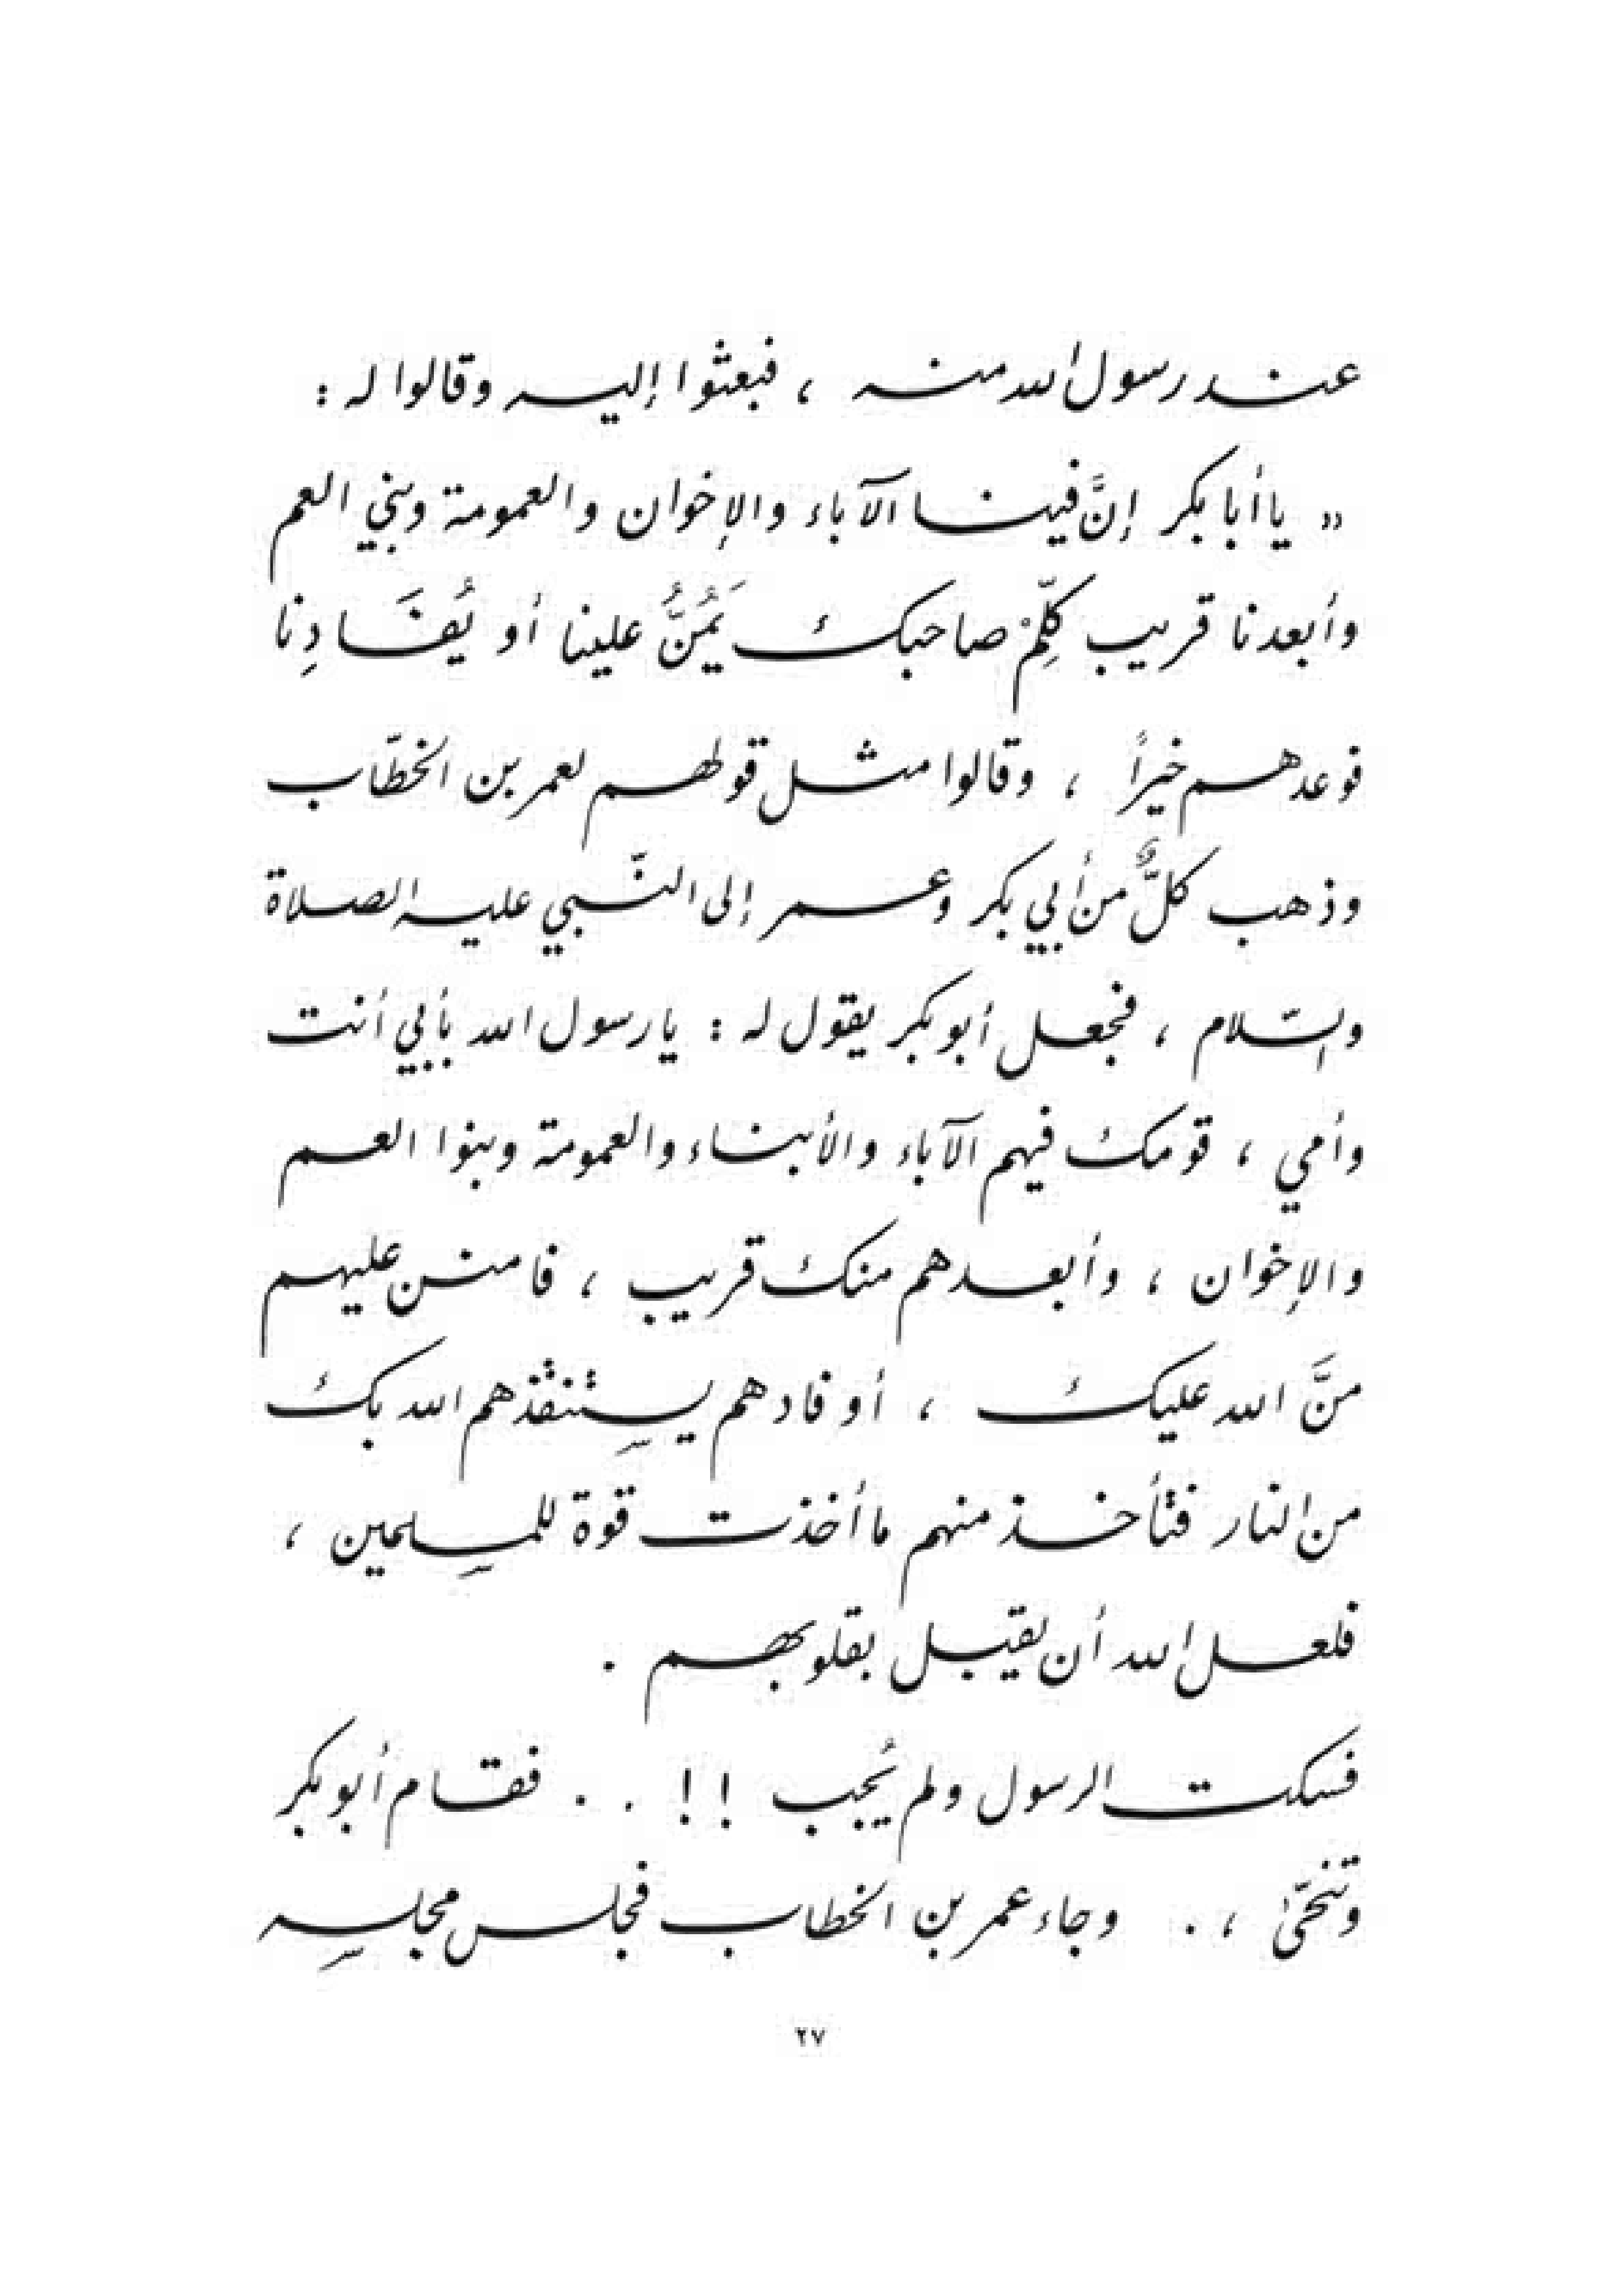 عند رسول الله منه ، فبعثوا إليه وقالوا له :
« يا أبا بكر إنَّ فينا الآباء والإخوان والعمومة وبني العم
وأبعدنا قريب كلِّمْ صاحبك يَمُنُّ علينا أو يُفَادِنا
فوعدهم خيراً ، وقالوا مثل قولهم لعمر بن الخطّاب
وذهب كلٌّ من أبي بكر وعمر إلى النّبي عليه الصلاة
والسّلام ، فجعل أبو بكر يقول له : يا رسول الله بأبي أنت
وأمي ، قومك فيهم الآباء والأبناء والعمومة وبنوا العم
والإخوان ، وأبعدهم منك قريب ، فامنن عليهم
منَّ الله عليك ، أو فادهم يستنقذهم الله بك
من النار فتأخذ منهم ما أخذت قوة للمسلمين ،
فلعل الله أن يقبل بقلوبهم .
فسكت الرسول ولم يُجب !! . . فقام أبو بكر
وتنحّىٰ ، . وجاء عمر بن الخطاب فجلس مجلسه
٢٧